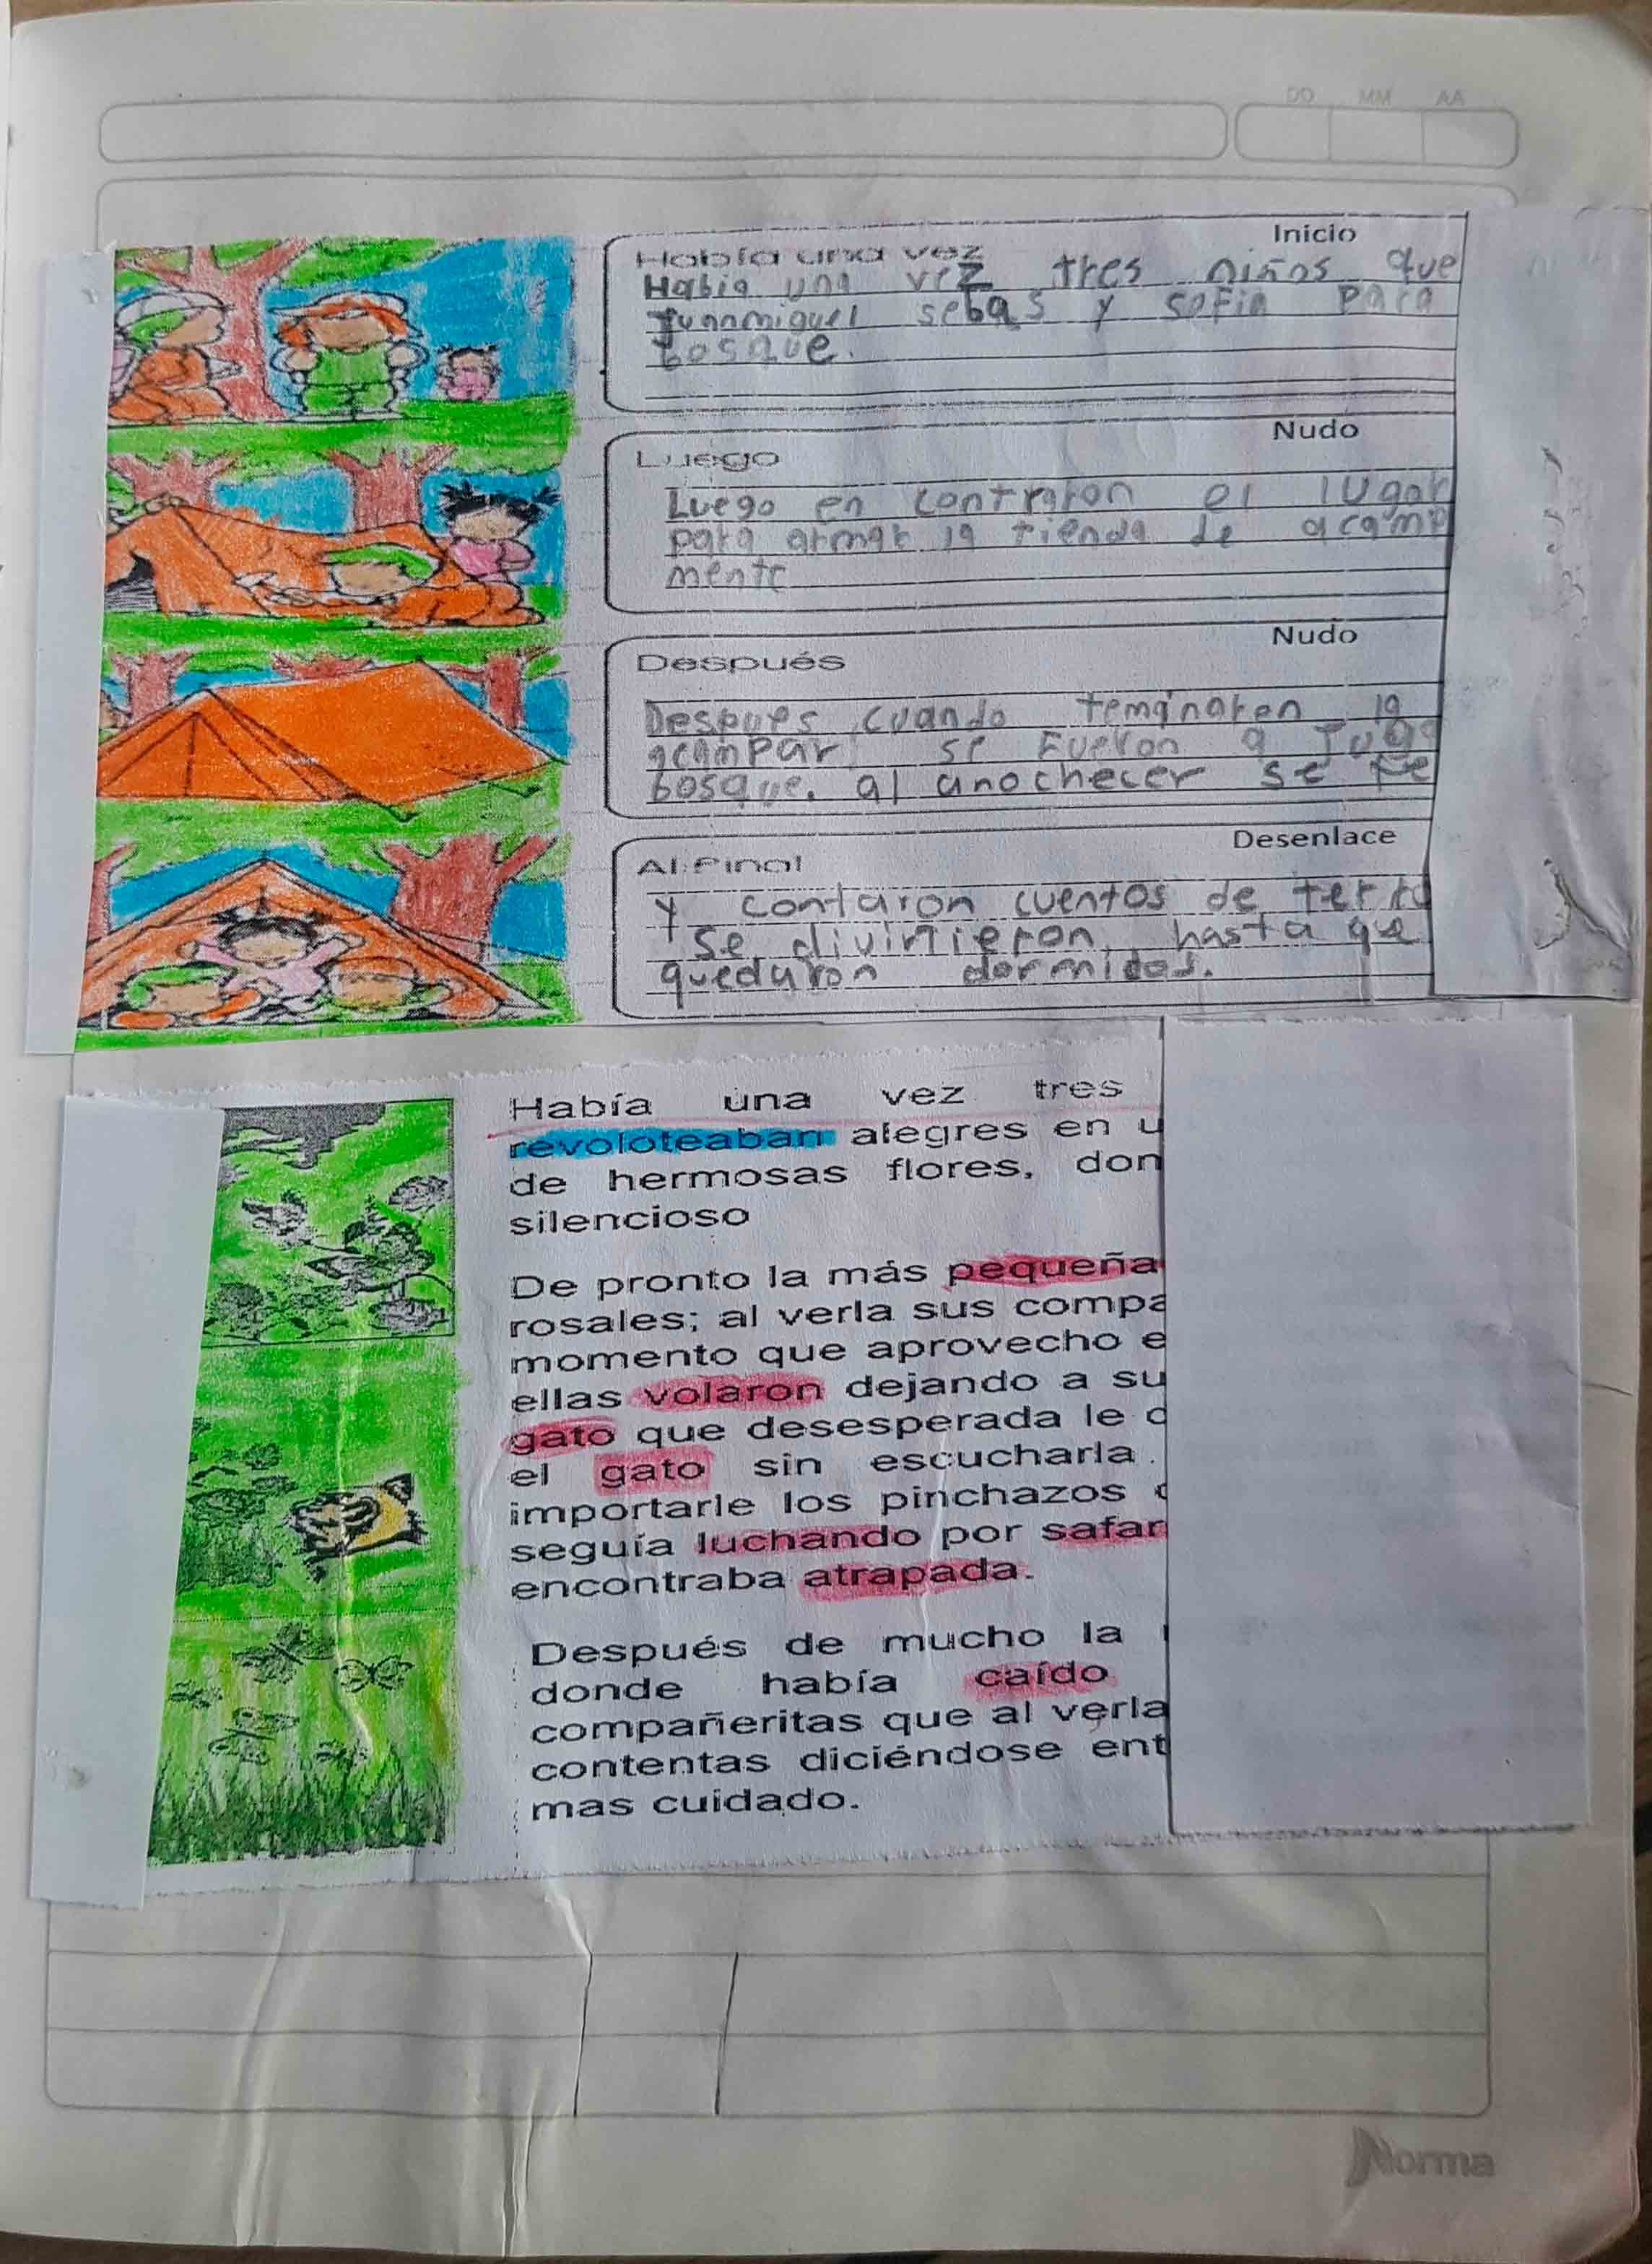 DD MM AA
Inicio
Había una vez
Habia una vez tres niños que
Juanmiguel sebas y sofia para
bosque.
Nudo
Luego
Luego en contraron el lugar
para armar la tienda de acamp
mente
Nudo
Después
Despues cuando teminaron la
acampar se Fueron a Juga
bosque. al anochecer se
Desenlace
Al Final
y contaron cuentos de terro
se divirtieron, hasta que
quedaron dormidos.
Había una vez tres
revoloteaban alegres en u
de hermosas flores, don
silencioso
De pronto la más pequeña
rosales; al verla sus compa
momento que aprovecho e
ellas volaron dejando a su
gato que desesperada le
el gato sin escucharla.
importarle los pinchazos
seguía luchando por safar
encontraba atrapada.
Después de mucho la
donde había caído
compañeritas que al verla
contentas diciéndose ent
mas cuidado.
Norma